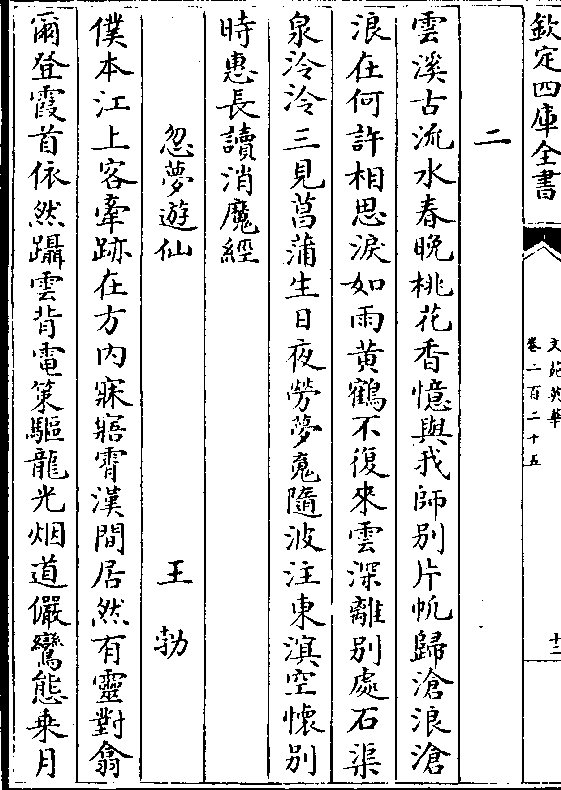 欽定四庫全書
文苑英華
卷二百二十五
十三
二
雲溪古流水春晚桃花香憶與我師别片帆歸滄浪滄
浪在何許相思淚如雨黄鶴不復來雲深離别處石渠
泉泠泠三見菖蒲生日夜勞夢魂隨波注東溟空懷别
時惠長讀消魔經
忽夢遊仙 王勃
僕本江上客牽跡在方内寐寤霄漢間居然有靈對翕
爾登霞首依然躡雲背電策驅龍光烟道儼鸞態乗月